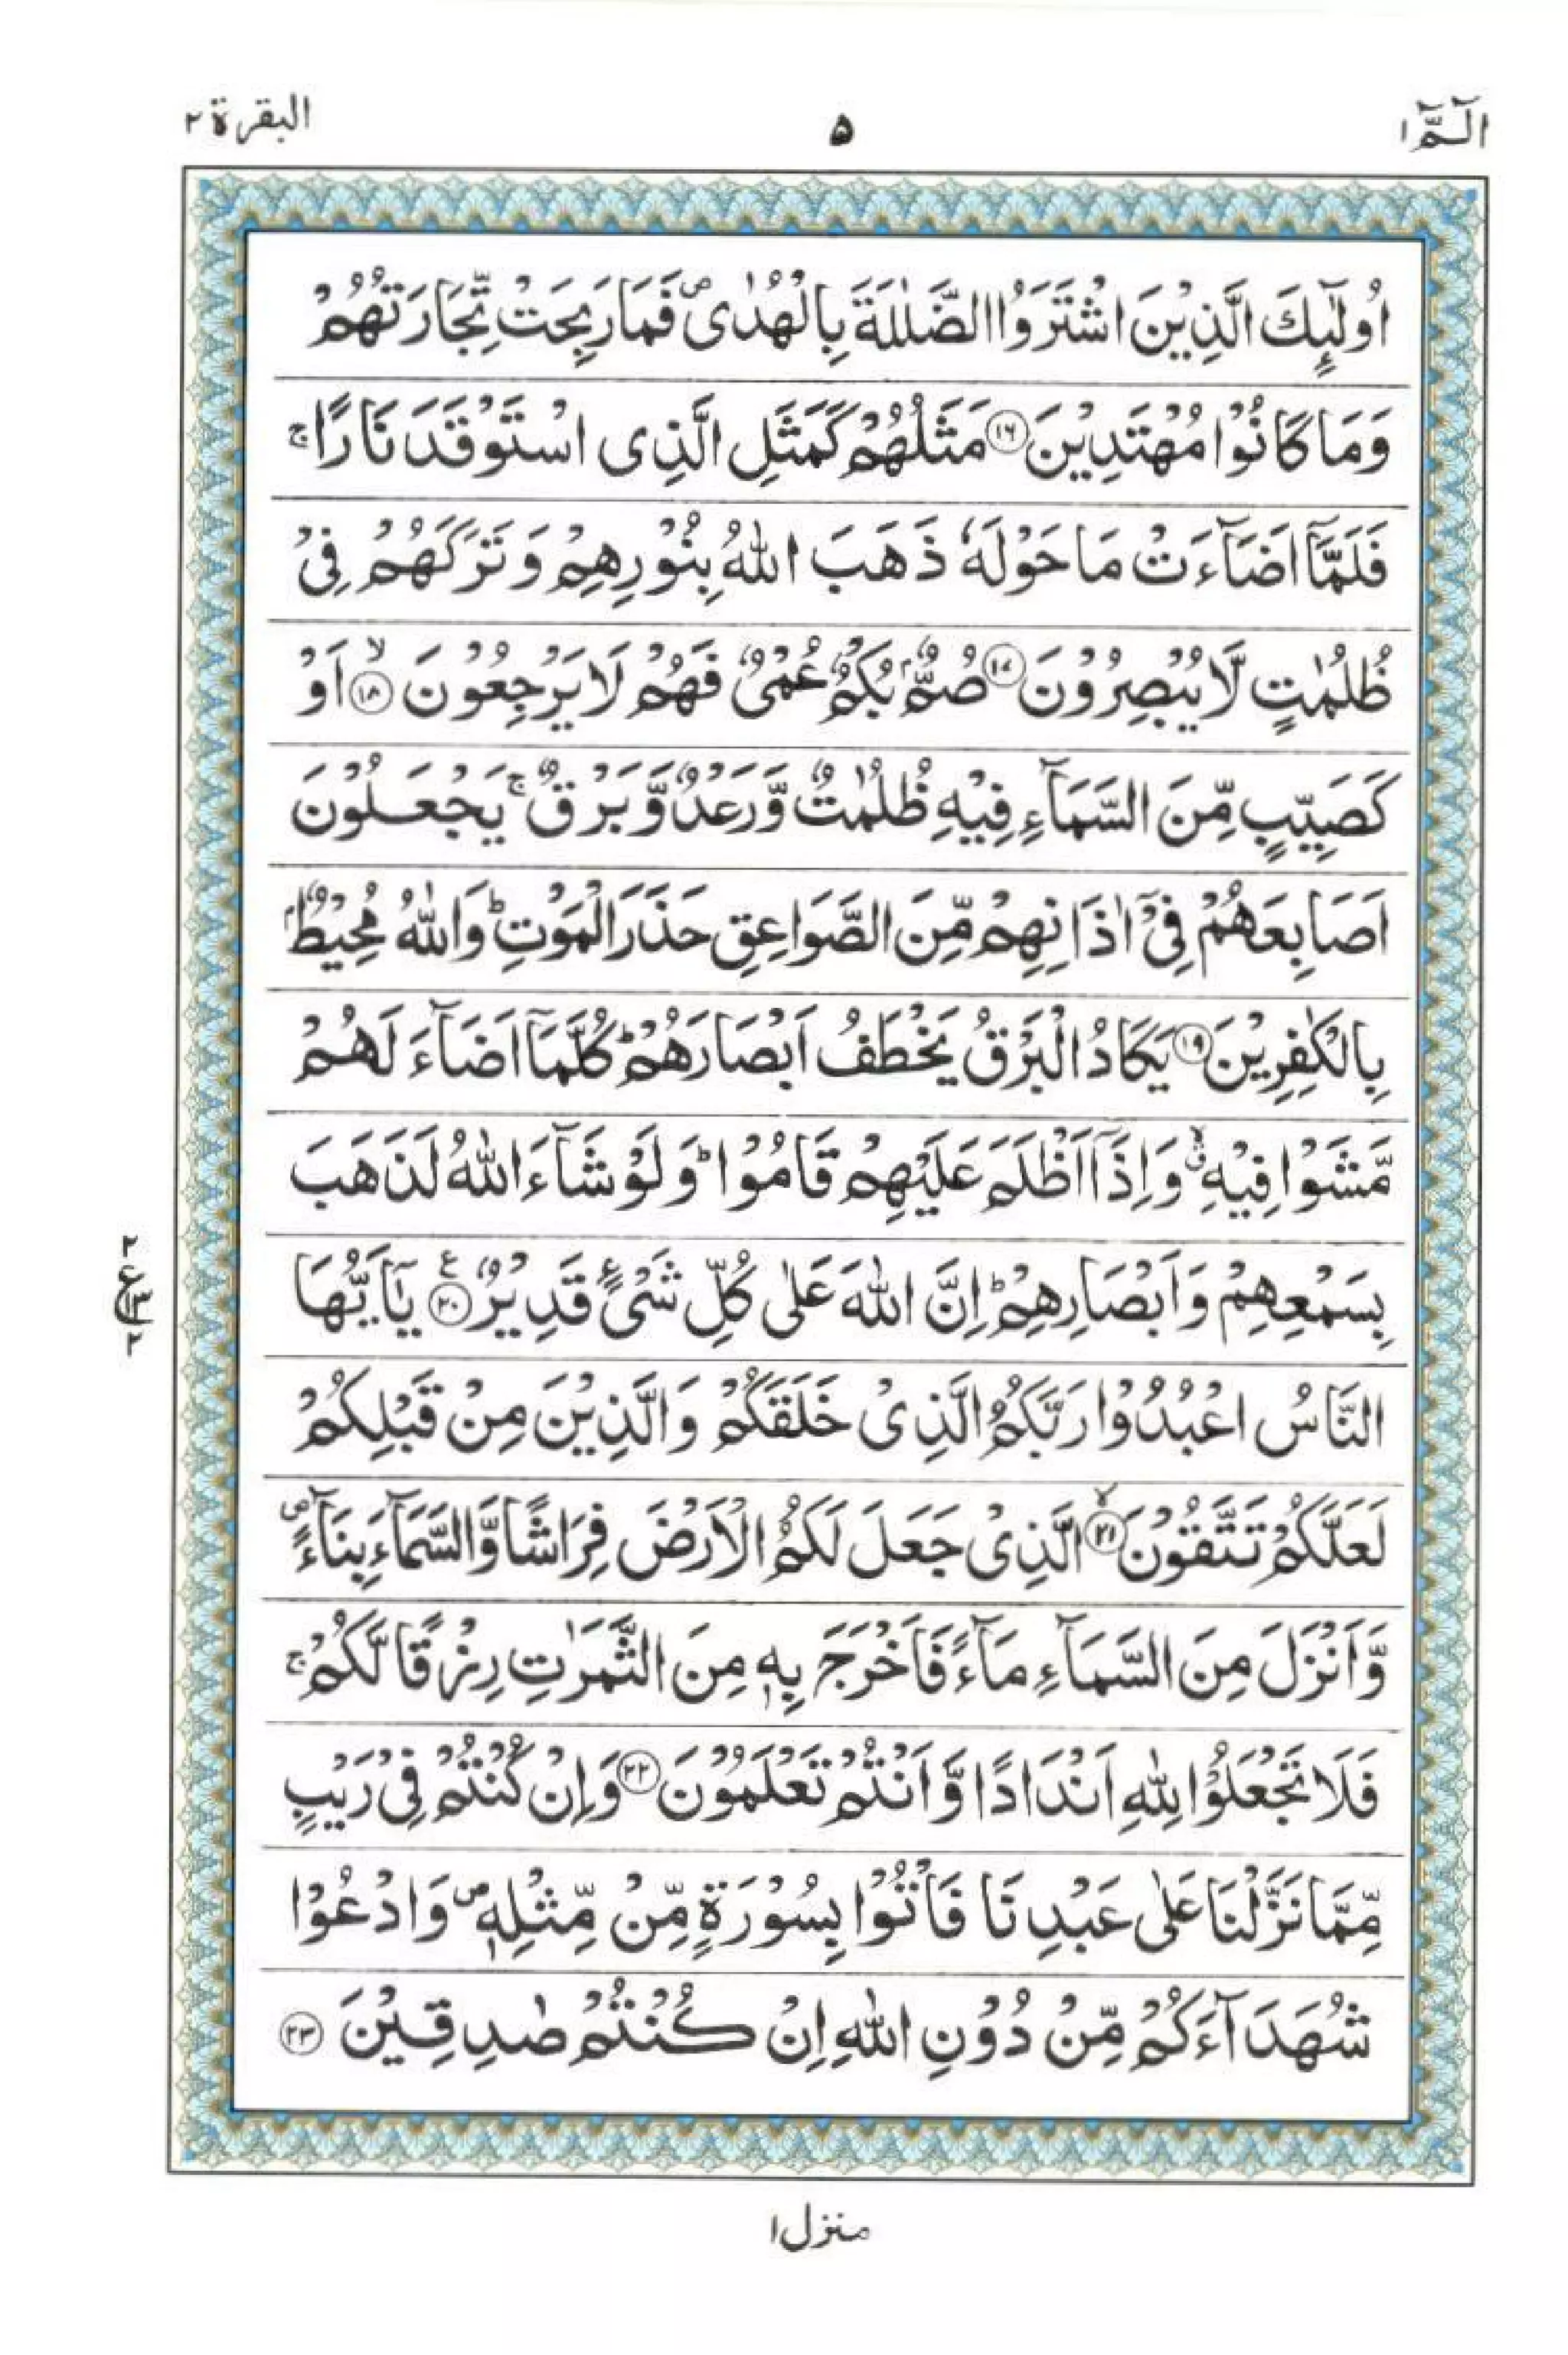 الٓمّٓ ۱
۵
البقرة ۲
اُولٰٓئِكَ الَّذِيْنَ اشْتَرَوُا الضَّلٰلَةَ بِالْهُدٰى ۪ فَمَا رَبِحَتْ تِّجَارَتُهُمْ
وَمَا كَانُوْا مُهْتَدِيْنَ ﴿۱۶﴾ مَثَلُهُمْ كَمَثَلِ الَّذِى اسْتَوْقَدَ نَارًا ۚ
فَلَمَّآ اَضَآءَتْ مَا حَوْلَهٗ ذَهَبَ اللّٰهُ بِنُوْرِهِمْ وَتَرَكَهُمْ فِىْ
ظُلُمٰتٍ لَّا يُبْصِرُوْنَ ﴿۱۷﴾ صُمٌّۢ بُكْمٌ عُمْىٌ فَهُمْ لَا يَرْجِعُوْنَ ۙ﴿۱۸﴾ اَوْ
كَصَيِّبٍ مِّنَ السَّمَآءِ فِيْهِ ظُلُمٰتٌ وَّرَعْدٌ وَّبَرْقٌ ۚ يَجْعَلُوْنَ
اَصَابِعَهُمْ فِىْٓ اٰذَانِهِمْ مِّنَ الصَّوَاعِقِ حَذَرَ الْمَوْتِ ؕ وَاللّٰهُ مُحِيْطٌۢ
بِالْكٰفِرِيْنَ ﴿۱۹﴾ يَكَادُ الْبَرْقُ يَخْطَفُ اَبْصَارَهُمْ ؕ كُلَّمَآ اَضَآءَ لَهُمْ
مَّشَوْا فِيْهِ ۙۗ وَاِذَآ اَظْلَمَ عَلَيْهِمْ قَامُوْا ؕ وَلَوْ شَآءَ اللّٰهُ لَذَهَبَ
بِسَمْعِهِمْ وَاَبْصَارِهِمْ ؕ اِنَّ اللّٰهَ عَلٰى كُلِّ شَىْءٍ قَدِيْرٌ ﴿۲۰﴾ ع يٰٓاَيُّهَا
النَّاسُ اعْبُدُوْا رَبَّكُمُ الَّذِىْ خَلَقَكُمْ وَالَّذِيْنَ مِنْ قَبْلِكُمْ
لَعَلَّكُمْ تَتَّقُوْنَ ۙ﴿۲۱﴾ الَّذِىْ جَعَلَ لَكُمُ الْاَرْضَ فِرَاشًا وَّالسَّمَآءَ بِنَآءً ۪
وَّاَنْزَلَ مِنَ السَّمَآءِ مَآءً فَاَخْرَجَ بِهٖ مِنَ الثَّمَرٰتِ رِزْقًا لَّكُمْ ۚ
فَلَا تَجْعَلُوْا لِلّٰهِ اَنْدَادًا وَّاَنْتُمْ تَعْلَمُوْنَ ﴿۲۲﴾ وَاِنْ كُنْتُمْ فِىْ رَيْبٍ
مِّمَّا نَزَّلْنَا عَلٰى عَبْدِنَا فَاْتُوْا بِسُوْرَةٍ مِّنْ مِّثْلِهٖ ۪ وَادْعُوْا
شُهَدَآءَكُمْ مِّنْ دُوْنِ اللّٰهِ اِنْ كُنْتُمْ صٰدِقِيْنَ ﴿۲۳﴾
۲
ع
۲
منزل ۱